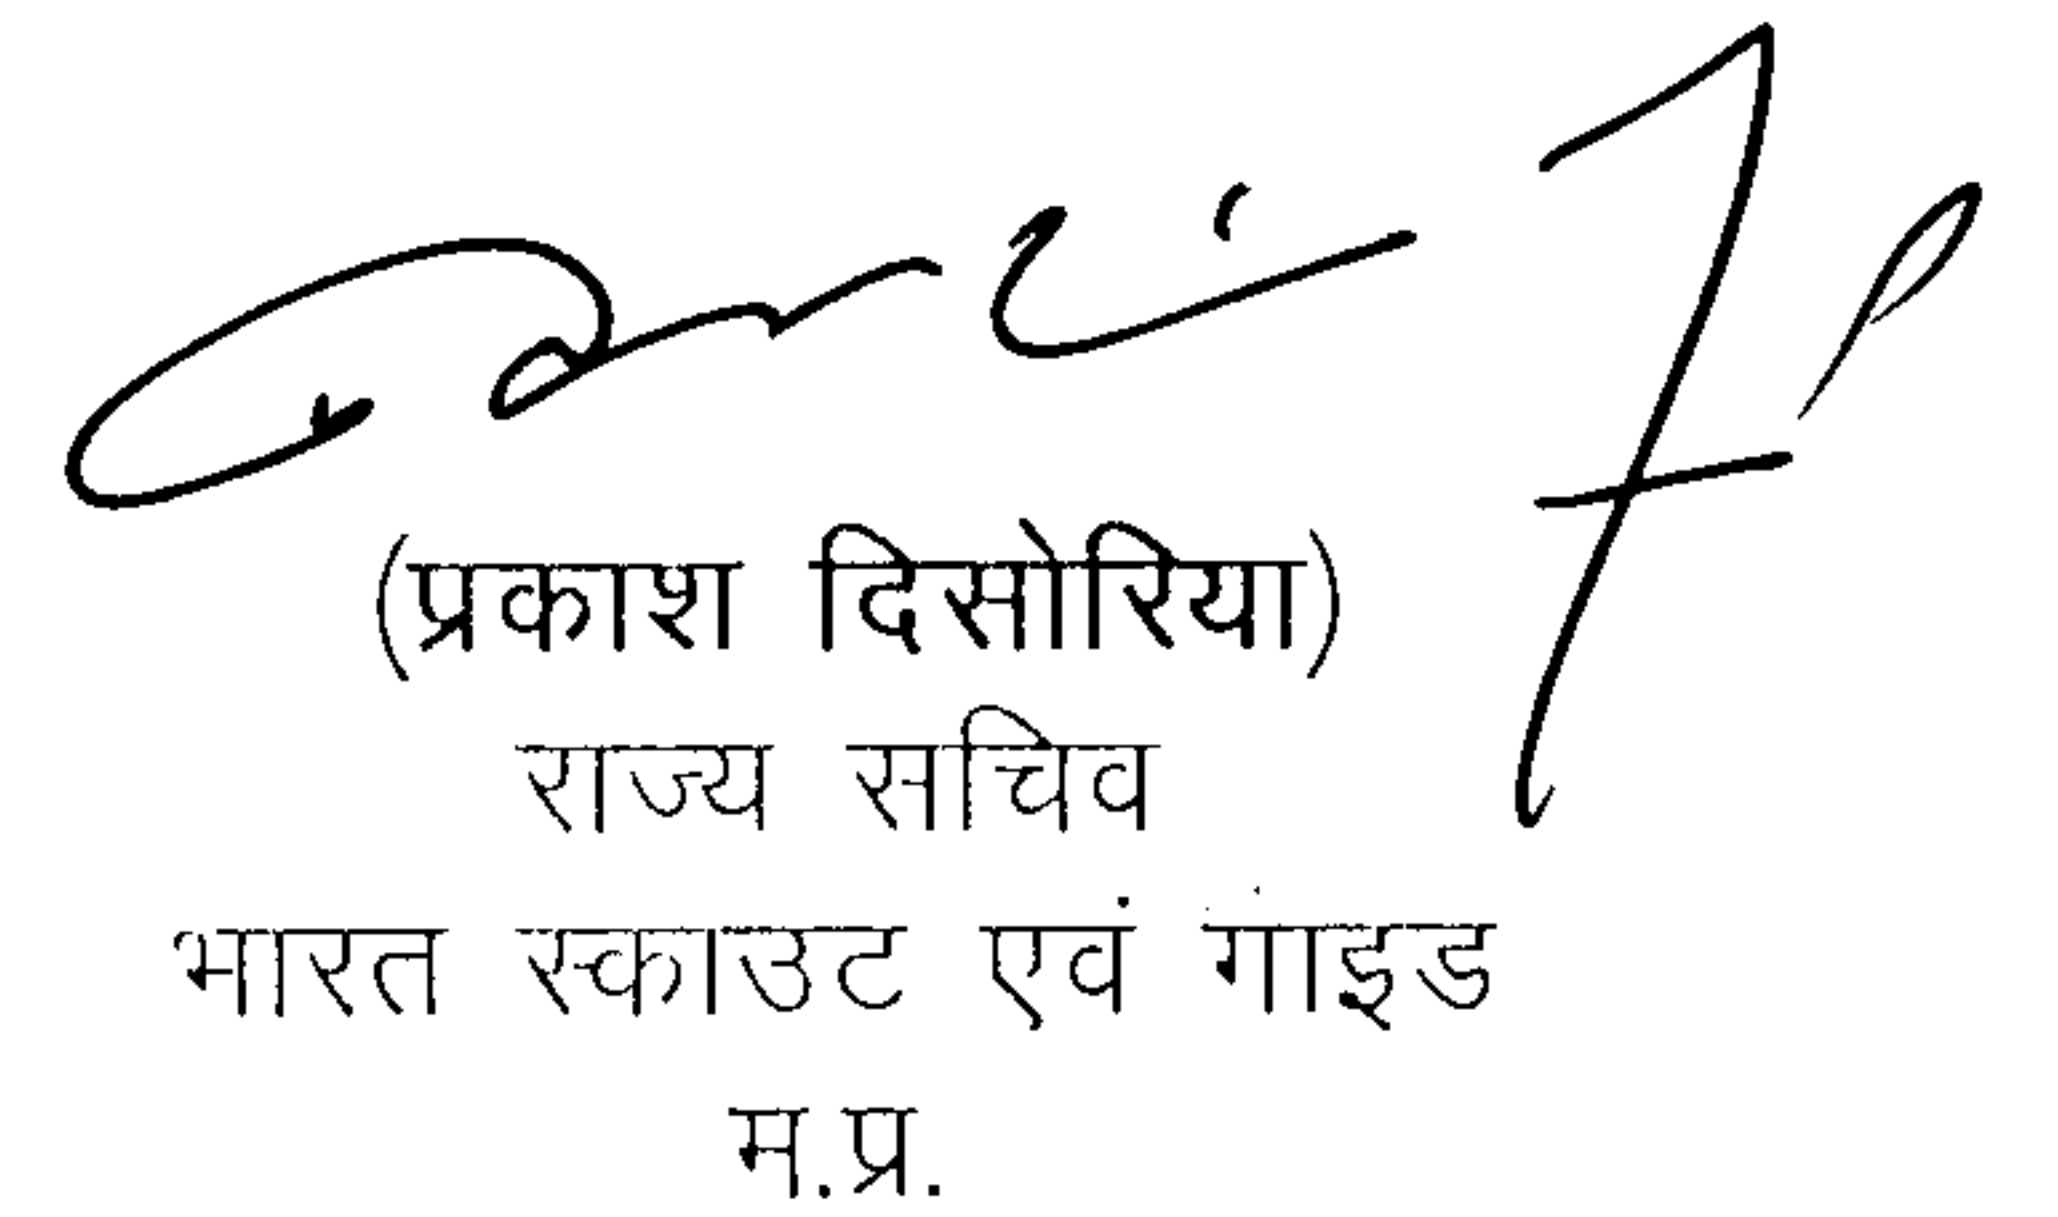 (प्रकाश दिसोरिया)
राज्य सचिव
भारत स्काउट एवं गाइड
म.प्र.